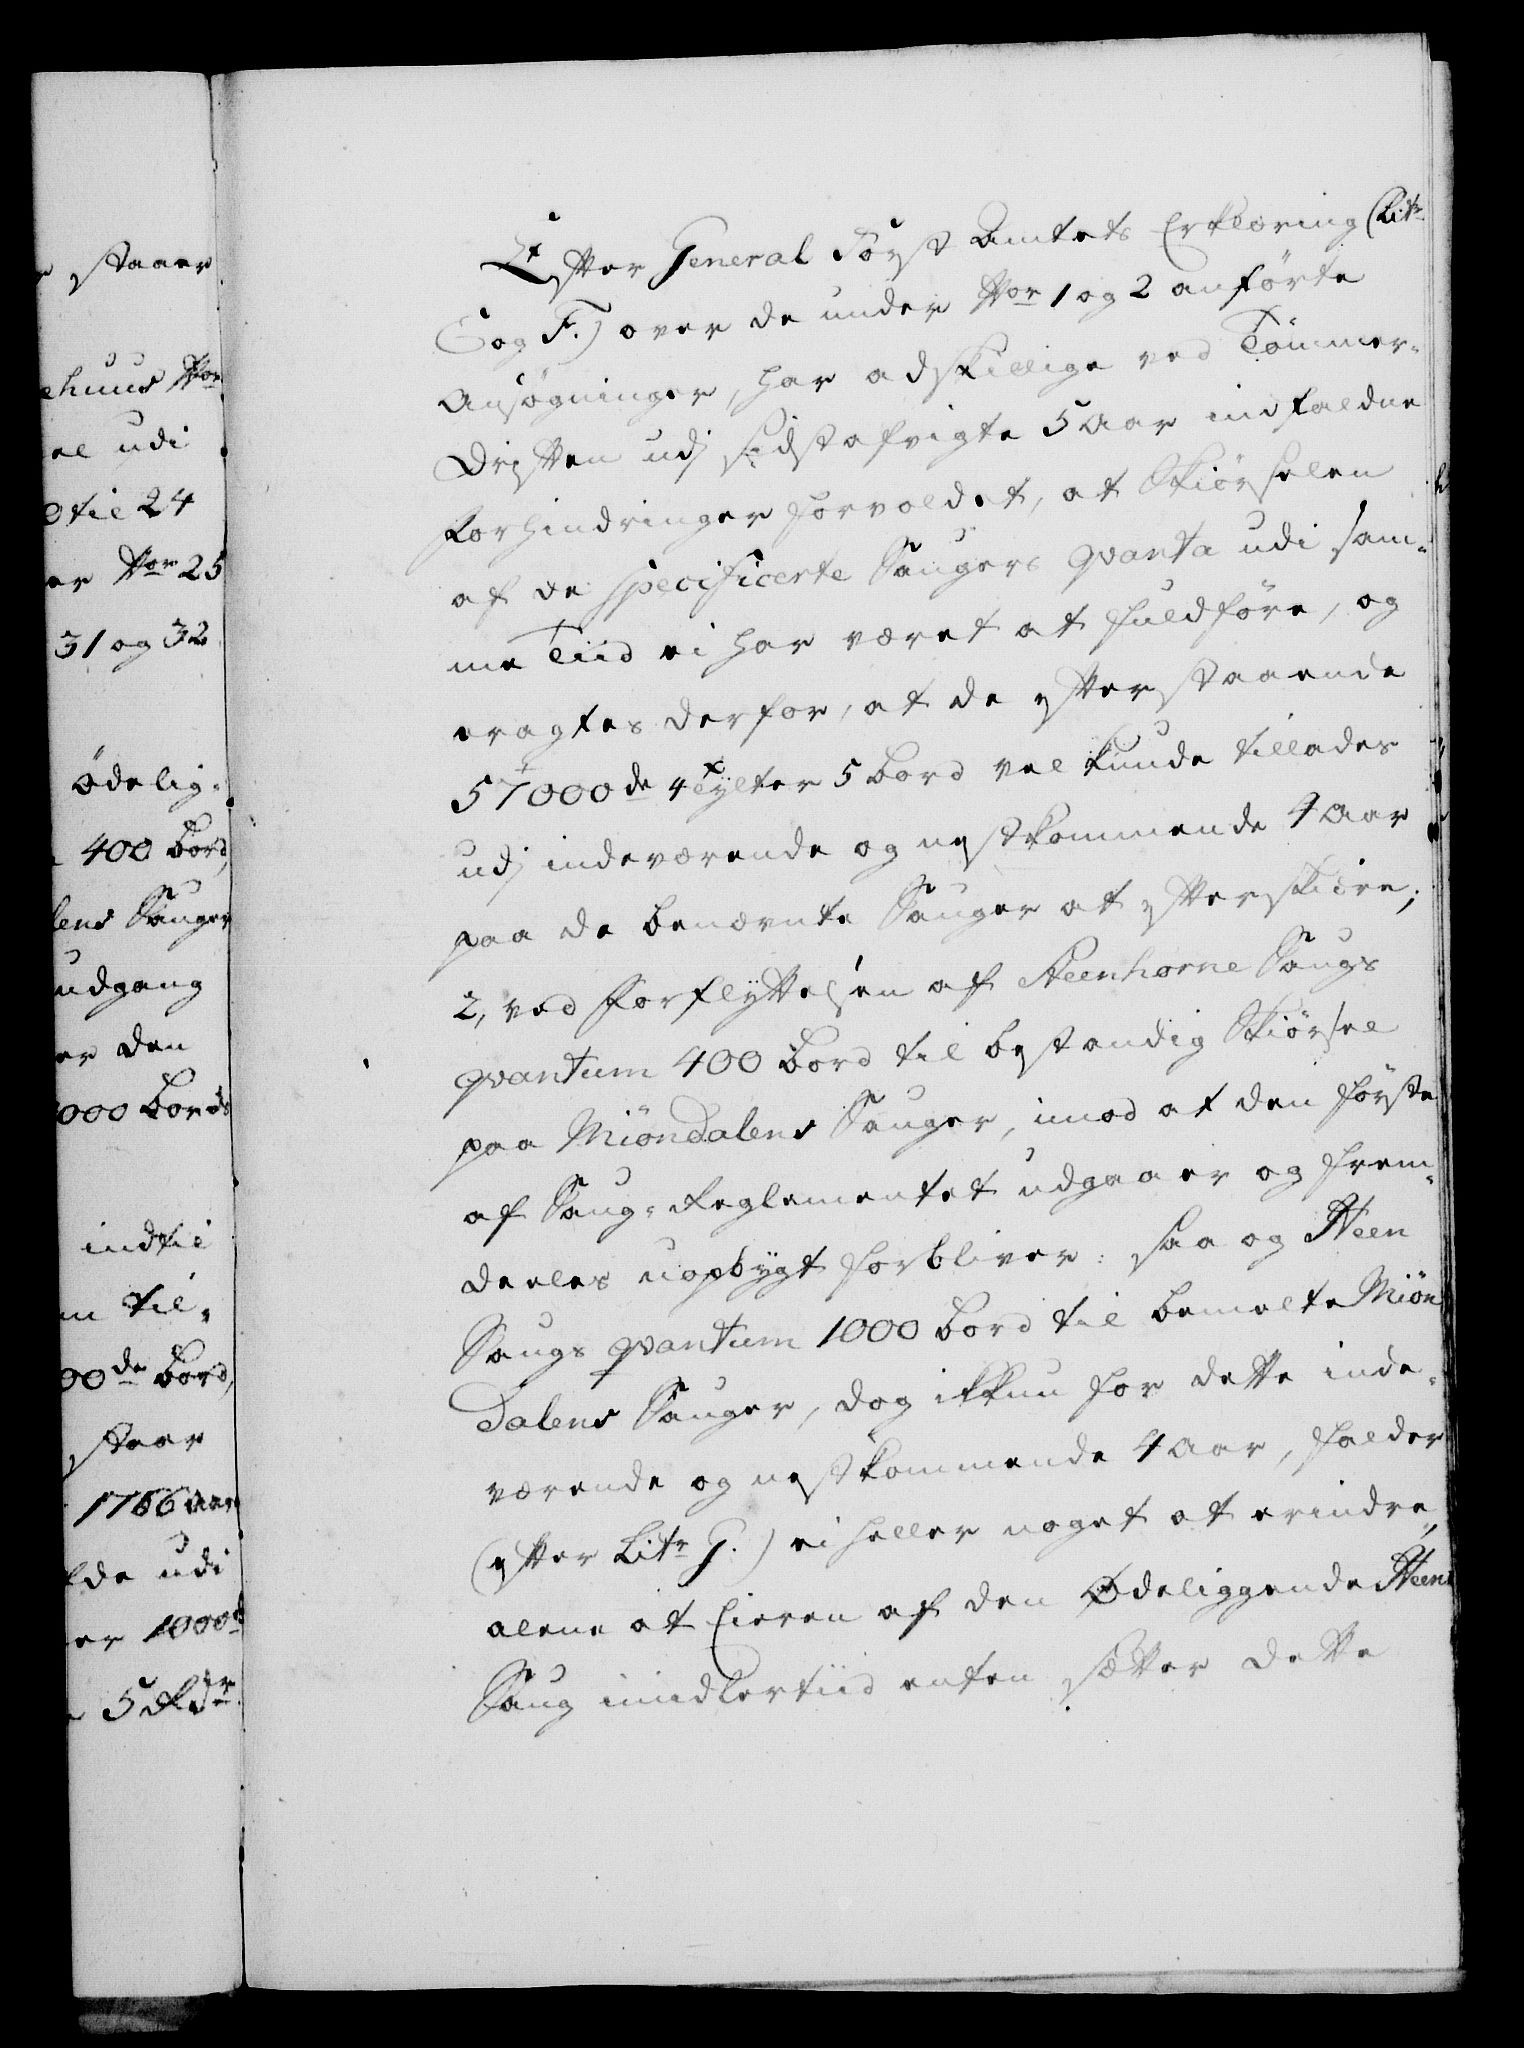 r staaer
ehuus No͞r
el udi
d til 24
er No͞r 25
31 og 32
ödelig-
400 bord,
lens Sauger
udgang
er den
000 bords
indtil
m til-
00de bord,
staar
1766 aar
lde udi
er 1000de
5 Rdr
Efter General Forst Amtets Erklæring (Litr
E og F.) over de under No͞r 1 og 2 anförte
Ansögninger, har adskillige ved Tömmer-
Driften udj sidstafvigte 5 Aar indfaldne
forhindringer forvoldet, at Skiörselen
af de specificerte Saugers qvanta udi sam-
me Tiid ei har været at fuldföre, og
eragtes derfor, at de efterstaaende
57000de 4 Tylter 5 bord vel kunde tillades
udj indeværende og nestkommende 4 Aar
paa de benævnte Sauger at efterskiöre;
2, ved forflyttelsen af Steenhorne Saugs
qvantum 400 bord til bestandig Skiörsel
paa Miöndalens Sauger, imod at den förste
af Saug-Reglementet udgaaer og frem-
deeles uopbygt forbliver: saa og Steen
Saugs qvantum 1000 bord til bemelte Miön
dalens Sauger, dog ikkun for dette inde-
værende og nestkommende 4 Aar, falder
(efter Litr G.) ei heller noget at erindre,
alene at Eieren af den Ödeliggende Steen
Saug imidlertiid enten sætter dette